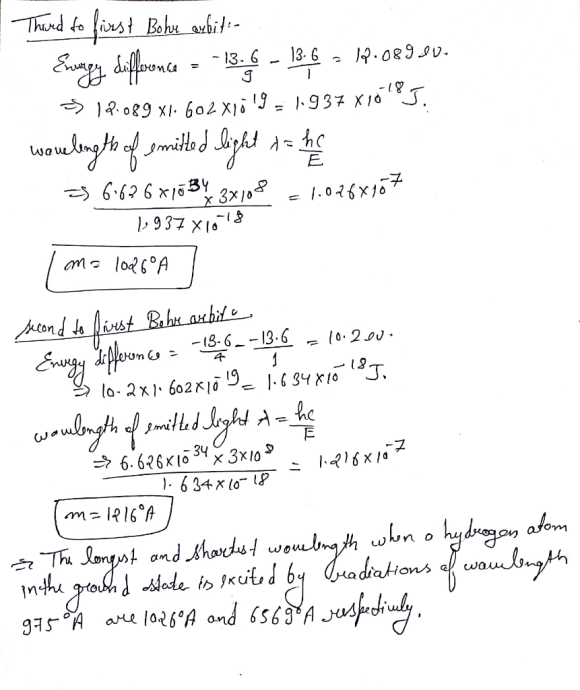 Third to first Bohr orbit:-
Energy difference = -13.6/9 - 13.6/1 = 12.089 ev.
⇒ 12.089 x1.602 x10^-19 = 1.937 x10^-18 J.
wavelength of emitted light λ = hc/E
⇒ 6.626 x10^-34 x 3x10^8 / 1.937 x10^-18 = 1.026x10^-7
m = 1026°A
second to first Bohr orbit
Energy difference = -13.6/4 - -13.6/1 = 10.2 ev.
⇒ 10.2x1.602x10^-19 = 1.634x10^-18 J.
wavelength of emitted light λ = hc/E
⇒ 6.626x10^-34 x 3x10^8 / 1.634x10^-18 = 1.216x10^-7
m=1216°A
⇒ The longest and shortest wavelength when a hydrogen atom
in the ground state is excited by radiations of wavelength
975°A are 1026°A and 6569°A respectively.